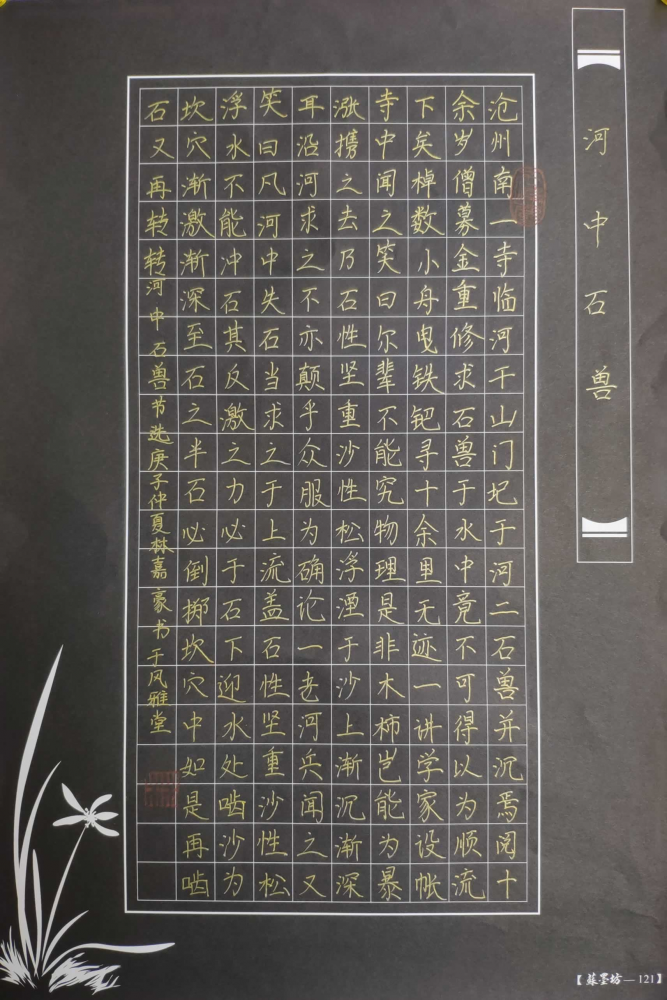 河中石兽
沧州南一寺临河干山门圮于河二石兽并沉焉阅十
余岁僧募金重修求石兽于水中竟不可得以为顺流
下矣棹数小舟曳铁钯寻十余里无迹一讲学家设帐
寺中闻之笑曰尔辈不能究物理是非木杮岂能为暴
涨携之去乃石性坚重沙性松浮湮于沙上渐沉渐深
耳沿河求之不亦颠乎众服为确论一老河兵闻之又
笑曰凡河中失石当求之于上流盖石性坚重沙性松
浮水不能冲石其反激之力必于石下迎水处啮沙为
坎穴渐激渐深至石之半石必倒掷坎穴中如是再啮
石又再转转河中石兽节选庚子仲夏林嘉豪书于风雅堂
【苏墨坊—121】